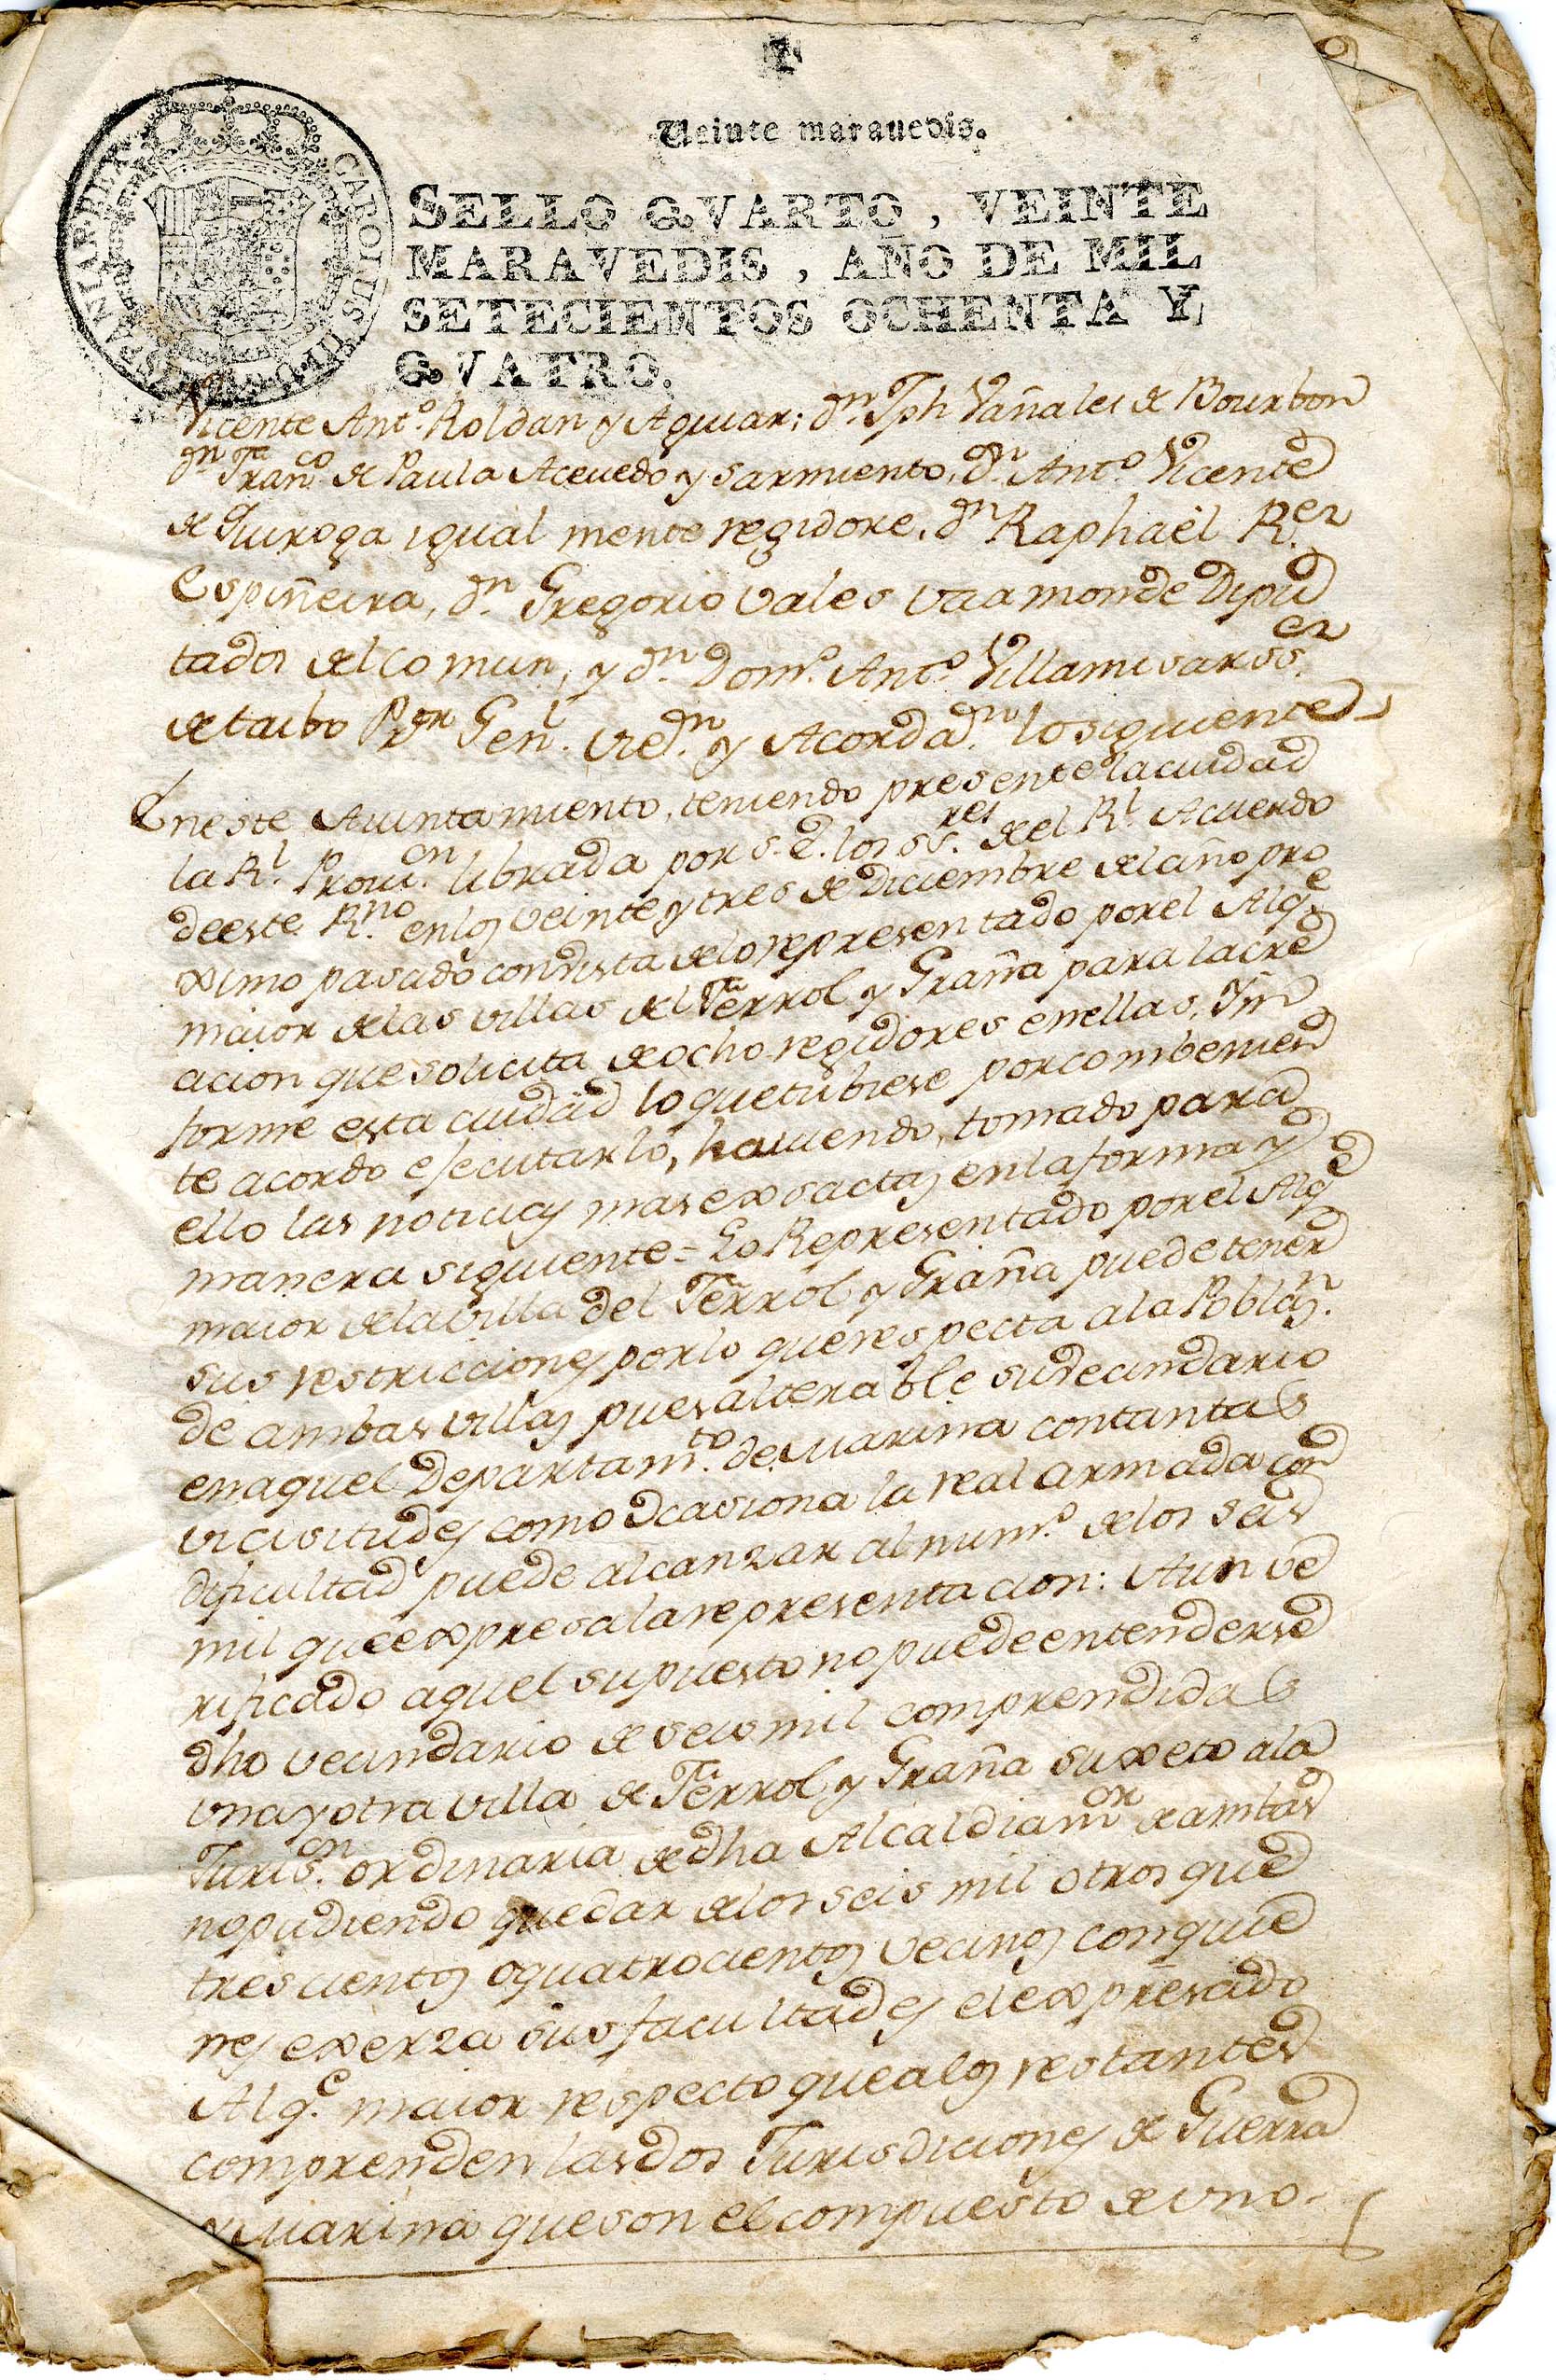 Veinte maravedis.
CAROLUS III D G HISPANIAR REX
SELLO QVARTO, VEINTE
MARAVEDIS, AÑO DE MIL
SETECIENTOS OCHENTA Y
QVATRO.
Vicente Antº. Roldan y Aguiar; dn. Jph Vañales de Bourbon
dn Franco. de Paula Acevedo y Sarmiento, dn. Antº. Vicente
de Quiroga igual mente regidore, dn Raphaël R.ez
Espiñeira, dn. Gregorio Vales Vaamonde Dipu
tados del Comun, y dn. Domº. Antº. Villamisar ss.
de taibo Pror Genl. vien. y Acordan. lo siguiente
En este Aiuntamiento, teniendo presente la ciudad
la Rl. Provin. librada por S.E. los ssres. de el Rl. Acuerdo
de este Rno. en los veinte y tres de Diciembre del año pro
ximo pasado con vista de lo representado por el Alqe
maior de las villas del Ferrol y Graña para la cre
acion que solicita de ocho regidores en ellas, Yn
forme esta ciudad lo que tubiese por combenien
te acordo efecutarlo, haviendo, tomado para
ello las noticias mas exsactas en la forma y
manera siguiente = Lo Representado por el Alqe
maior de la villa del Ferrol y Graña puede tener
sus restricciones por lo que respecta a la Poblan.
de ambas villas pues alterable su vecindario
en aquel Departamto. de Marina con tantas
vicisitudes como ocasiona la real armada con
dificultad puede alcanzar al numº. de los seis
mil que expresa la representacion: Aun ve
rificado aquel supuesto no puede entenderse
dho vecindario de seis mil comprendidas
una y otra villa de Ferrol y Graña suxeto a la
Jurison. ordinaria de dha Alcaldia mor de ambas
no pudiendo quedar de los seis mil otros que
tres cientos o quatrocientos vecinos con quie
nes exerza sus facultades el expresado
Alqe. maior respecto que a los restantes
comprenden las dos Jurisdiciones de Guerra
y Marina que son el compuesto de uno